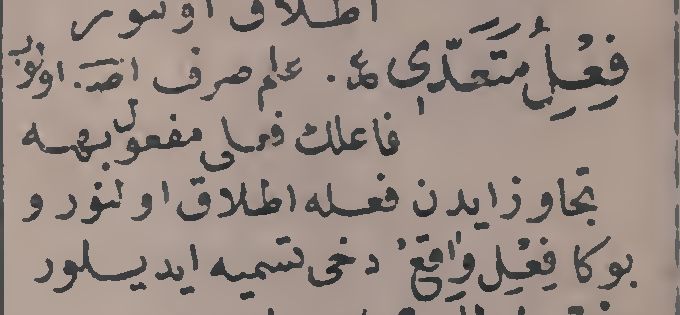 اطلاق اولنور
فِعْلِ مُتَعَدّٖى عــ . علم صرف اصـ. اولنوب
فاعلك فعلى مفعول بهــه
تجاوز ايدن فعــله اطلاق اولنور و
بوكا فِعْلِ وَاقِعْ دخى تسميه ايديــلور